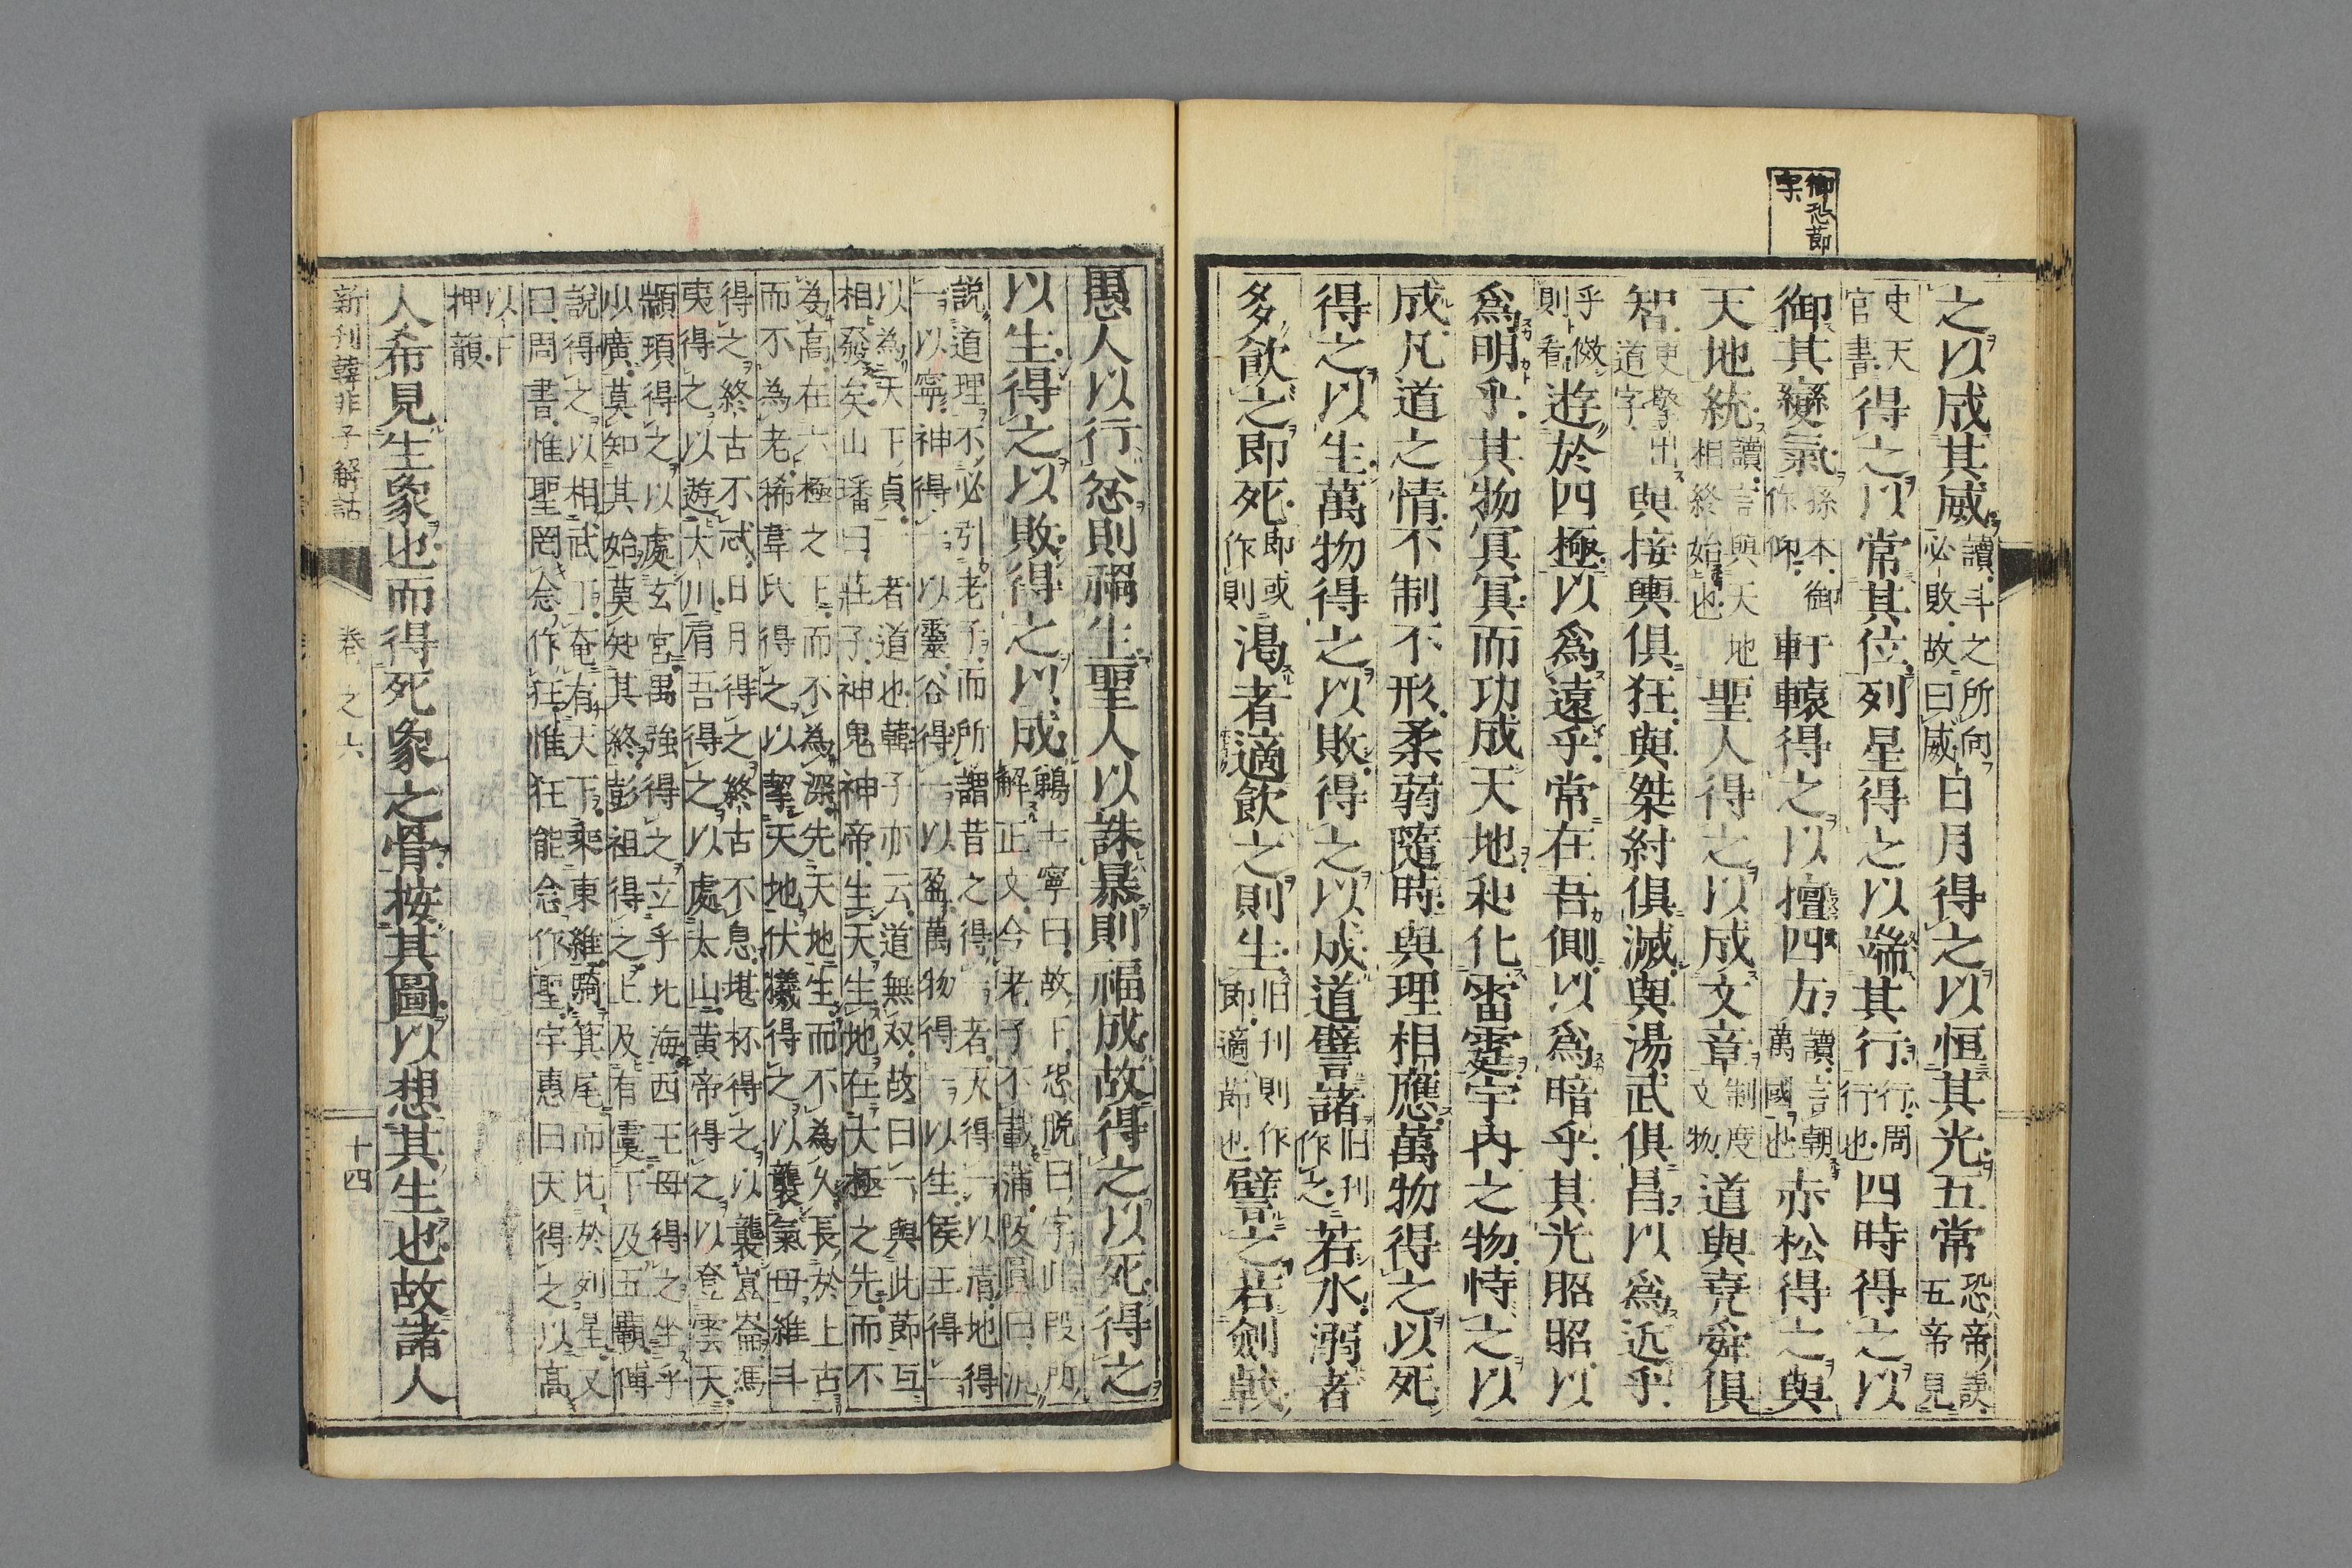 御恐節
字
之以成其威讀斗之所向必敗故曰威日月得之以恒其光五常恐帝誤五帝見
史天官書得之以常其位列星得之以端其行行周行也四時得之以
御其變氣孫本御作仰軒轅得之以擅四方讀言朝萬國也赤松得之與
天地統讀言與天地相終始也聖人得之以成文章制度文物道與堯舜俱
智更擧出道字與接輿俱狂與桀紂俱滅與湯武俱昌以爲近乎
乎倣則看遊於四極以爲遠乎常在吾側以爲暗乎其光昭昭以
爲明乎其物冥冥而功成天地和化雷霆宇內之物恃之以
成凡道之情不制不形柔弱隨時與理相應萬物得之以死
得之以生萬物得之以敗得之以成道譬諸旧刊作之若水溺者
多飮之即死即或作則渴者適飮之則生旧刊則作即適節也譬之若劍戟
愚人以行忿則禍生聖人以誅暴則福成故得之以死得之
以生得之以敗得之以成鵜士寧曰故下恐脱曰字此段所解正文今老子不載蒲阪圓曰汎
説道理不必引老子而所謂昔之得一者天得一以清地得
一以寧神得一以靈谷得一以盈萬物得一以生侯王得一
以為天下貞一者道也韓子亦云道無双故曰一與此節互
相發矣山璠曰莊子神鬼神帝生天生地在大極之先而不
為高在六極之下而不為深先天地生而不為久長於上古
而不為老狶韋氏得之以挈天地伏犧得之以襲氣母維斗
得之終古不忒日月得之終古不息堪杯得之以襲崑崙馮
夷得之以遊大川肩吾得之以處太山黃帝得之以登雲天
顓頊得之以處玄宮禺強得之立乎北海西王母得之坐乎
少廣莫知其始莫知其終彭祖得之上及有虞下及五覇傅
説得之以相武丁奄有天下乘東維騎箕尾而比於列星又
曰周書惟聖罔念作狂惟狂能念作聖宇惠曰天得之以高
以下
押韻
人希見生象也而得死象之骨按其圖以想其生也故諸人
新刊韓非子解詁 卷之六 十四